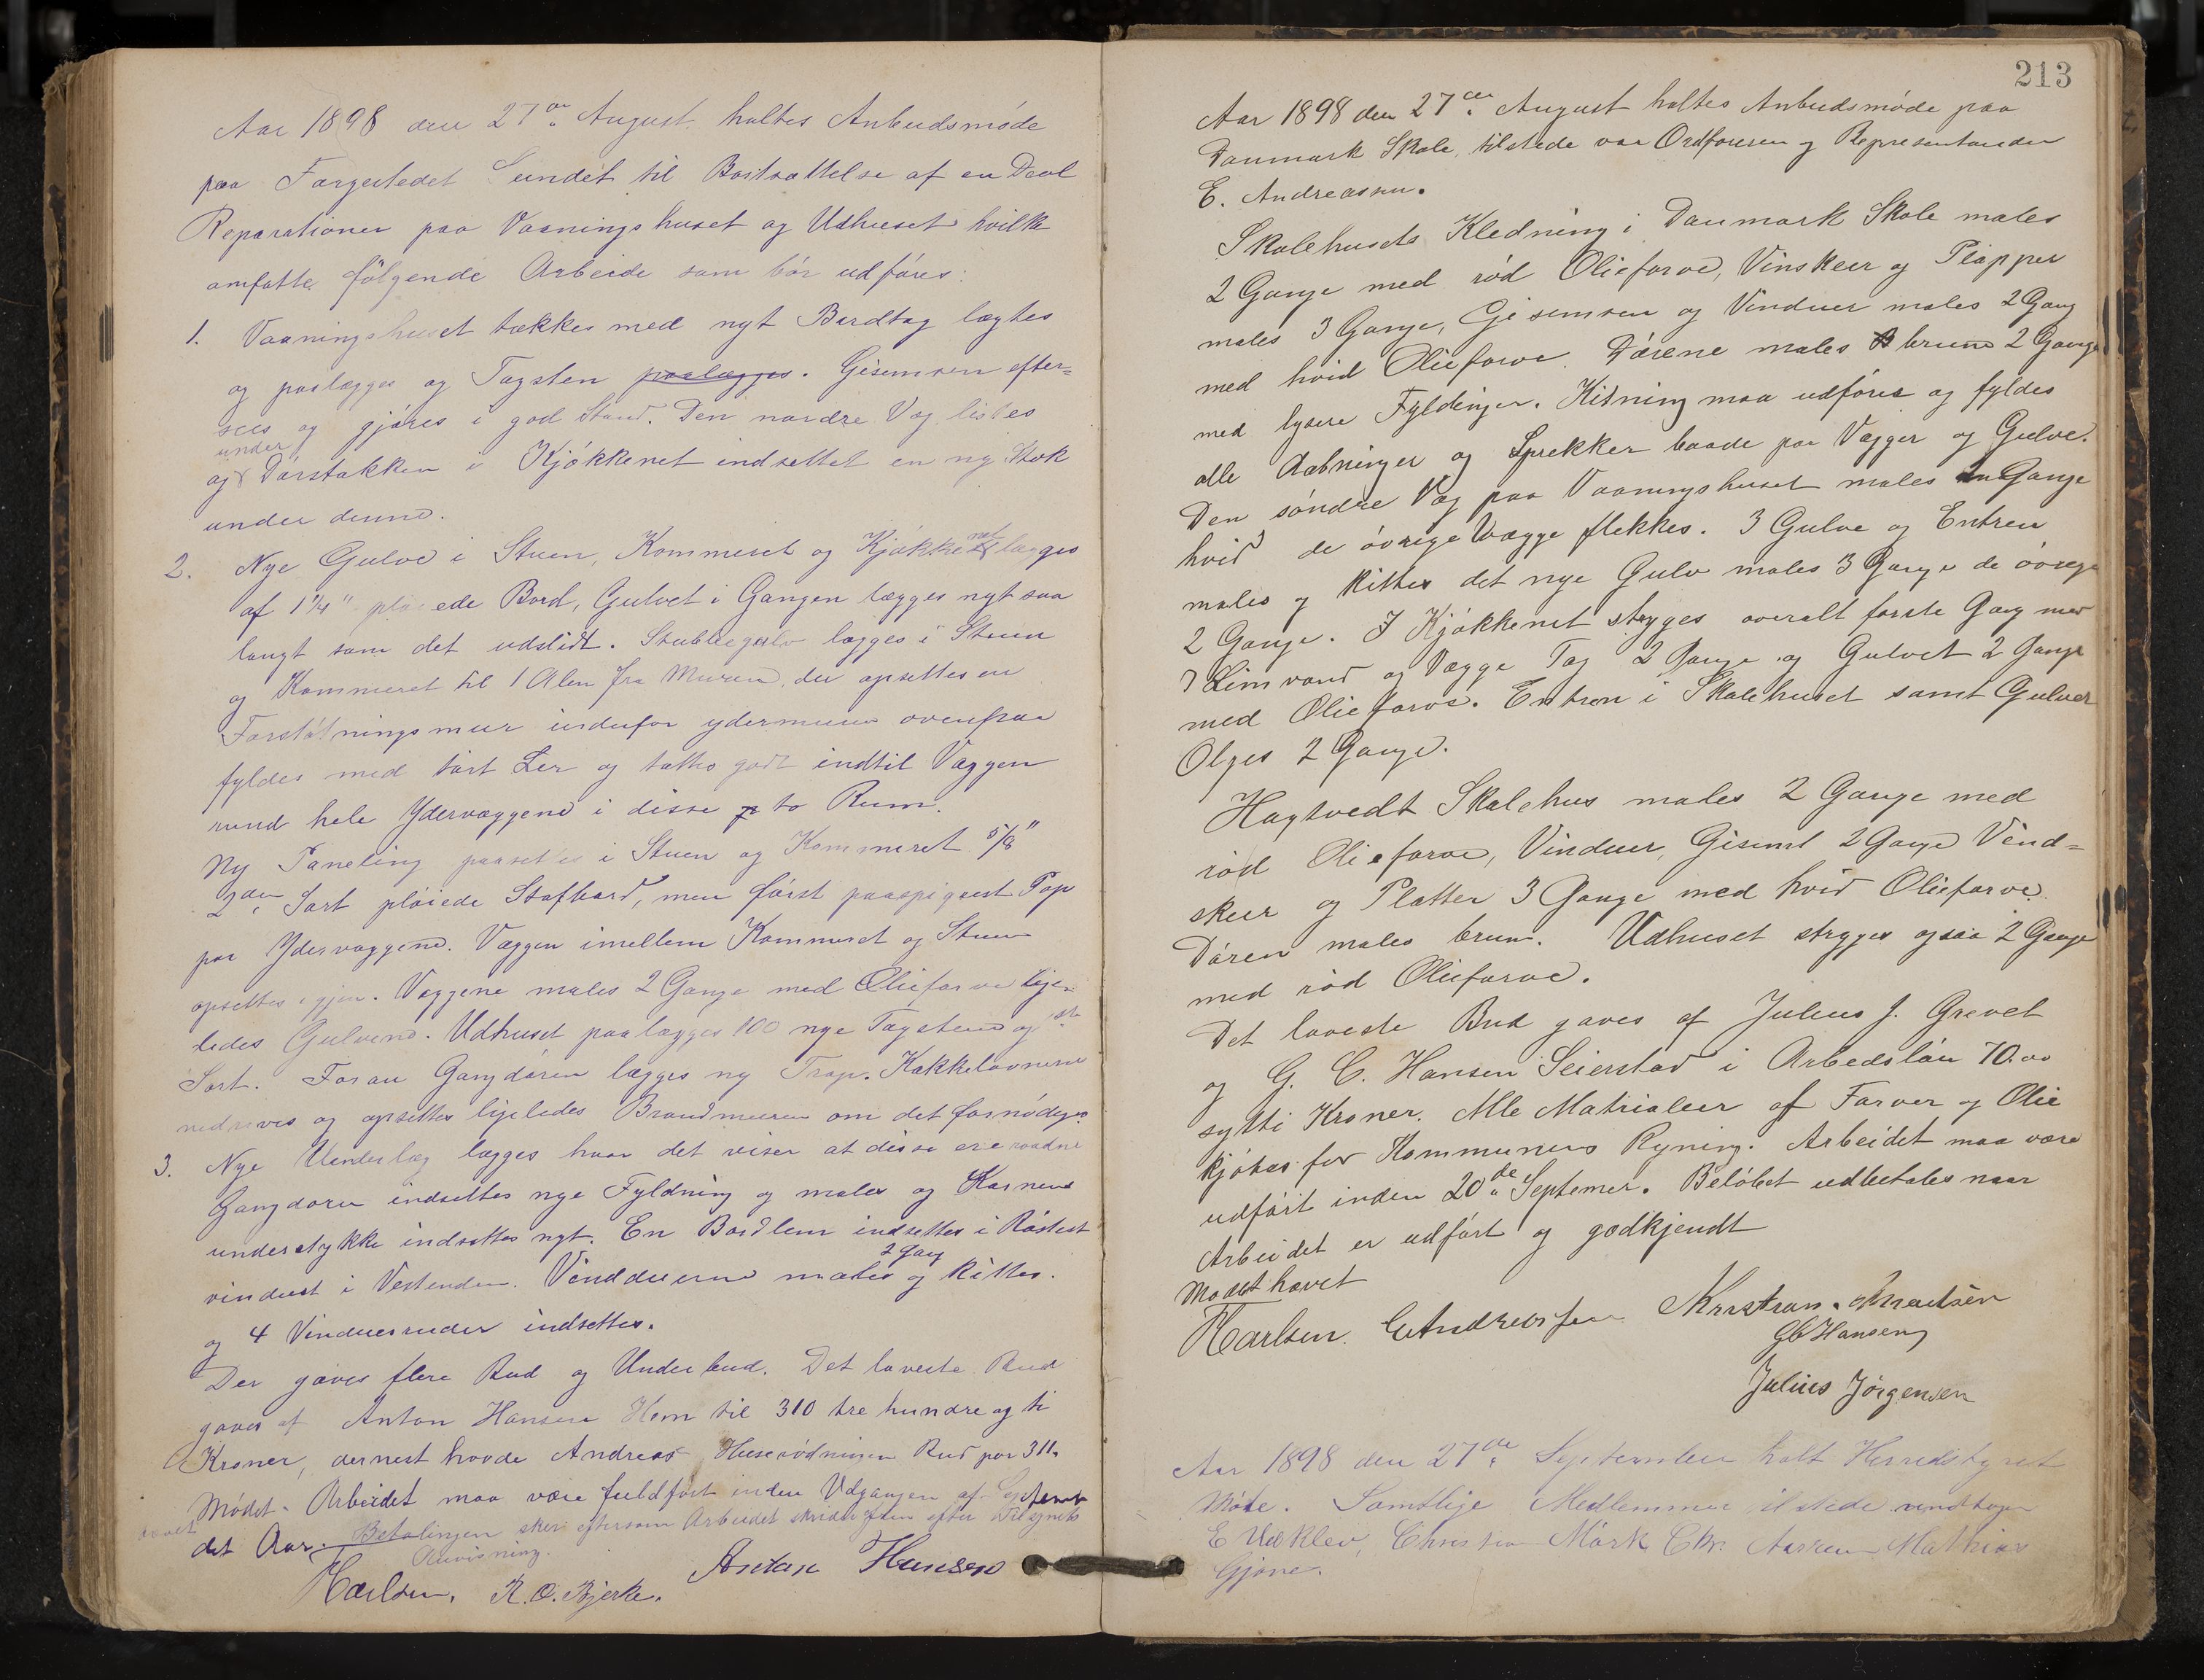 Aar 1898 den 27de August holtes Anbudsmøde
paa Færgestedet Sundet til Bortsættelse af en Deel
Reparationer paa Vaaningshuset og Udhuset hvilke
omfatte følgende Arbeide som bør udføres:
1. Vaaningshuset tækkes med nyt Bordtag lægtes
og paalægges og Tagsten paalægges. Gisemsen efter=
sees og gjøres i god Stand. Den nordre Væg
under
og Dørstokken i Kjøkkenet indsettet en ny Stok
under denne.
2. Nye Gulve i Stuen, Kommeret og Kjøkkenet lægges
af 1 1/4" pløiede Bord, Gulvet i Gangen lægges nyt saa
langt som det udslidt. Stubbegulv lægges i Stuen
og Kommeret til 1 Alen fra Muren, der opsettes en
Forstøtningsmur indenfor ydermuren ovenpaa
fyldes med tørt Ler og tættes godt indtil Væggen
rund hele Ydervæggene i disse to Rum.
Ny Paneling paasettes i Stuen og Kommeret 5/8"
2den Sort pløiede Stafbord, men først paaspigrest Pap
paa Ydervæggene. Væggen imellem Kommeret og Stuen
opsettes igjen. Væggene males 2 Gange med Oliefarve lige=
ledes Gulvene. Udhuset paalægges 100 nye Tagstene og 1ste
Sort. Foran Gangdøren lægges ny Trap. Kakkelovnene
nedrives og opsettes ligeledes Brandmuren om det fornødiges.
3. Nye Underlag lægges hvor det viser at disse ere raadne
Gangdøren indsettes nye Fyldning og males og Karmens
understykke indsettes nyt. En Bordlem indsettes i Røstest
2 Gang
vinduet i Vestenden. Vindduerne males og kittes.
og 4 Vinduesruder indsettes.
Der gaves flere Bud og Underbud. Det laveste Bud
gaves af Anton Hansen Hem til 310 tre hundre og ti
Kroner, dernest havde Andreas Huserødningen Bud paa 311.
Mødet Arbeidet maa være fuldført inden Udgangen af September
hævet
det Aar. Betalingen skeer eftersom Arbeidet skrider frem efter Tilsynets
Anvisning.
H Carlsen. R. O. Bjerke. Anton Hansen
213
Aar 1898 den 27de August holtes Anbudsmøde paa
Danmark Skole, tilstede var Ordføreren og Representanden
E. Andreassen.
Skolehusets Kledning i Danmark Skole males
2 Gange med rød Oliefarve, Vinskeer og Plapper
males 3 Gange, Gisemsen og Vinduer males 2 Gang
med hvid Oliefarve. Dørene males brune 2 Gange
med lysere Fyldinger. Kitning maa udføres og fyldes
alle Aabninger og Sprekker baade paa Vægger og Gulve.
Den søndre Væg paa Vaaningshuset males en Gange
hvid de øvrige Vægge flekkes. 3 Gulve og Entreen
males og kittes det nye Gulv males 3 Gange de øvrige
2 Gange. I Kjøkkenet stryges overalt første Gang med
Limvand og Vægge Tag 2 Gange og Gulvet 2 Gange
med Oliefarve. Entreen i Skolehuset samt Gulver
Oljes 2 Gange.
Hagtvedt Skolehus males 2 Gange med
rød Oliefarve, Vinduer, Gisims 2 Gange Vind=
skeer og Platter 3 Gange med hvid Oliefarve.
Døren males brun. Udhuset stryges ogsaa 2 Gange
med rød Oliefarve.
Det laveste Bud gaves af Julius J. Grevet
og G. C. Hansen Seierstad i Arbedsløn 70.00
sytti Kroner. Alle Matrialeer af Farver og Olie
kjøbes for Kommunens Ryning. Arbeidet maa være
udført inden 20de Septemer. Beløbet udbetales naar
Arbeidet er udført og godkjendt
Mødet hævet
H Carlsen E Andreassen Kristian Knudsen
G C Hansen
Julius Jørgensen
Aar 1898 den 27de September holt Herredstyret
Møde. Samtlige Medlemmer tilstede undtagen
E Vedklev, Christian Mørk, Chr. Aarren Mathias
Gjøne.